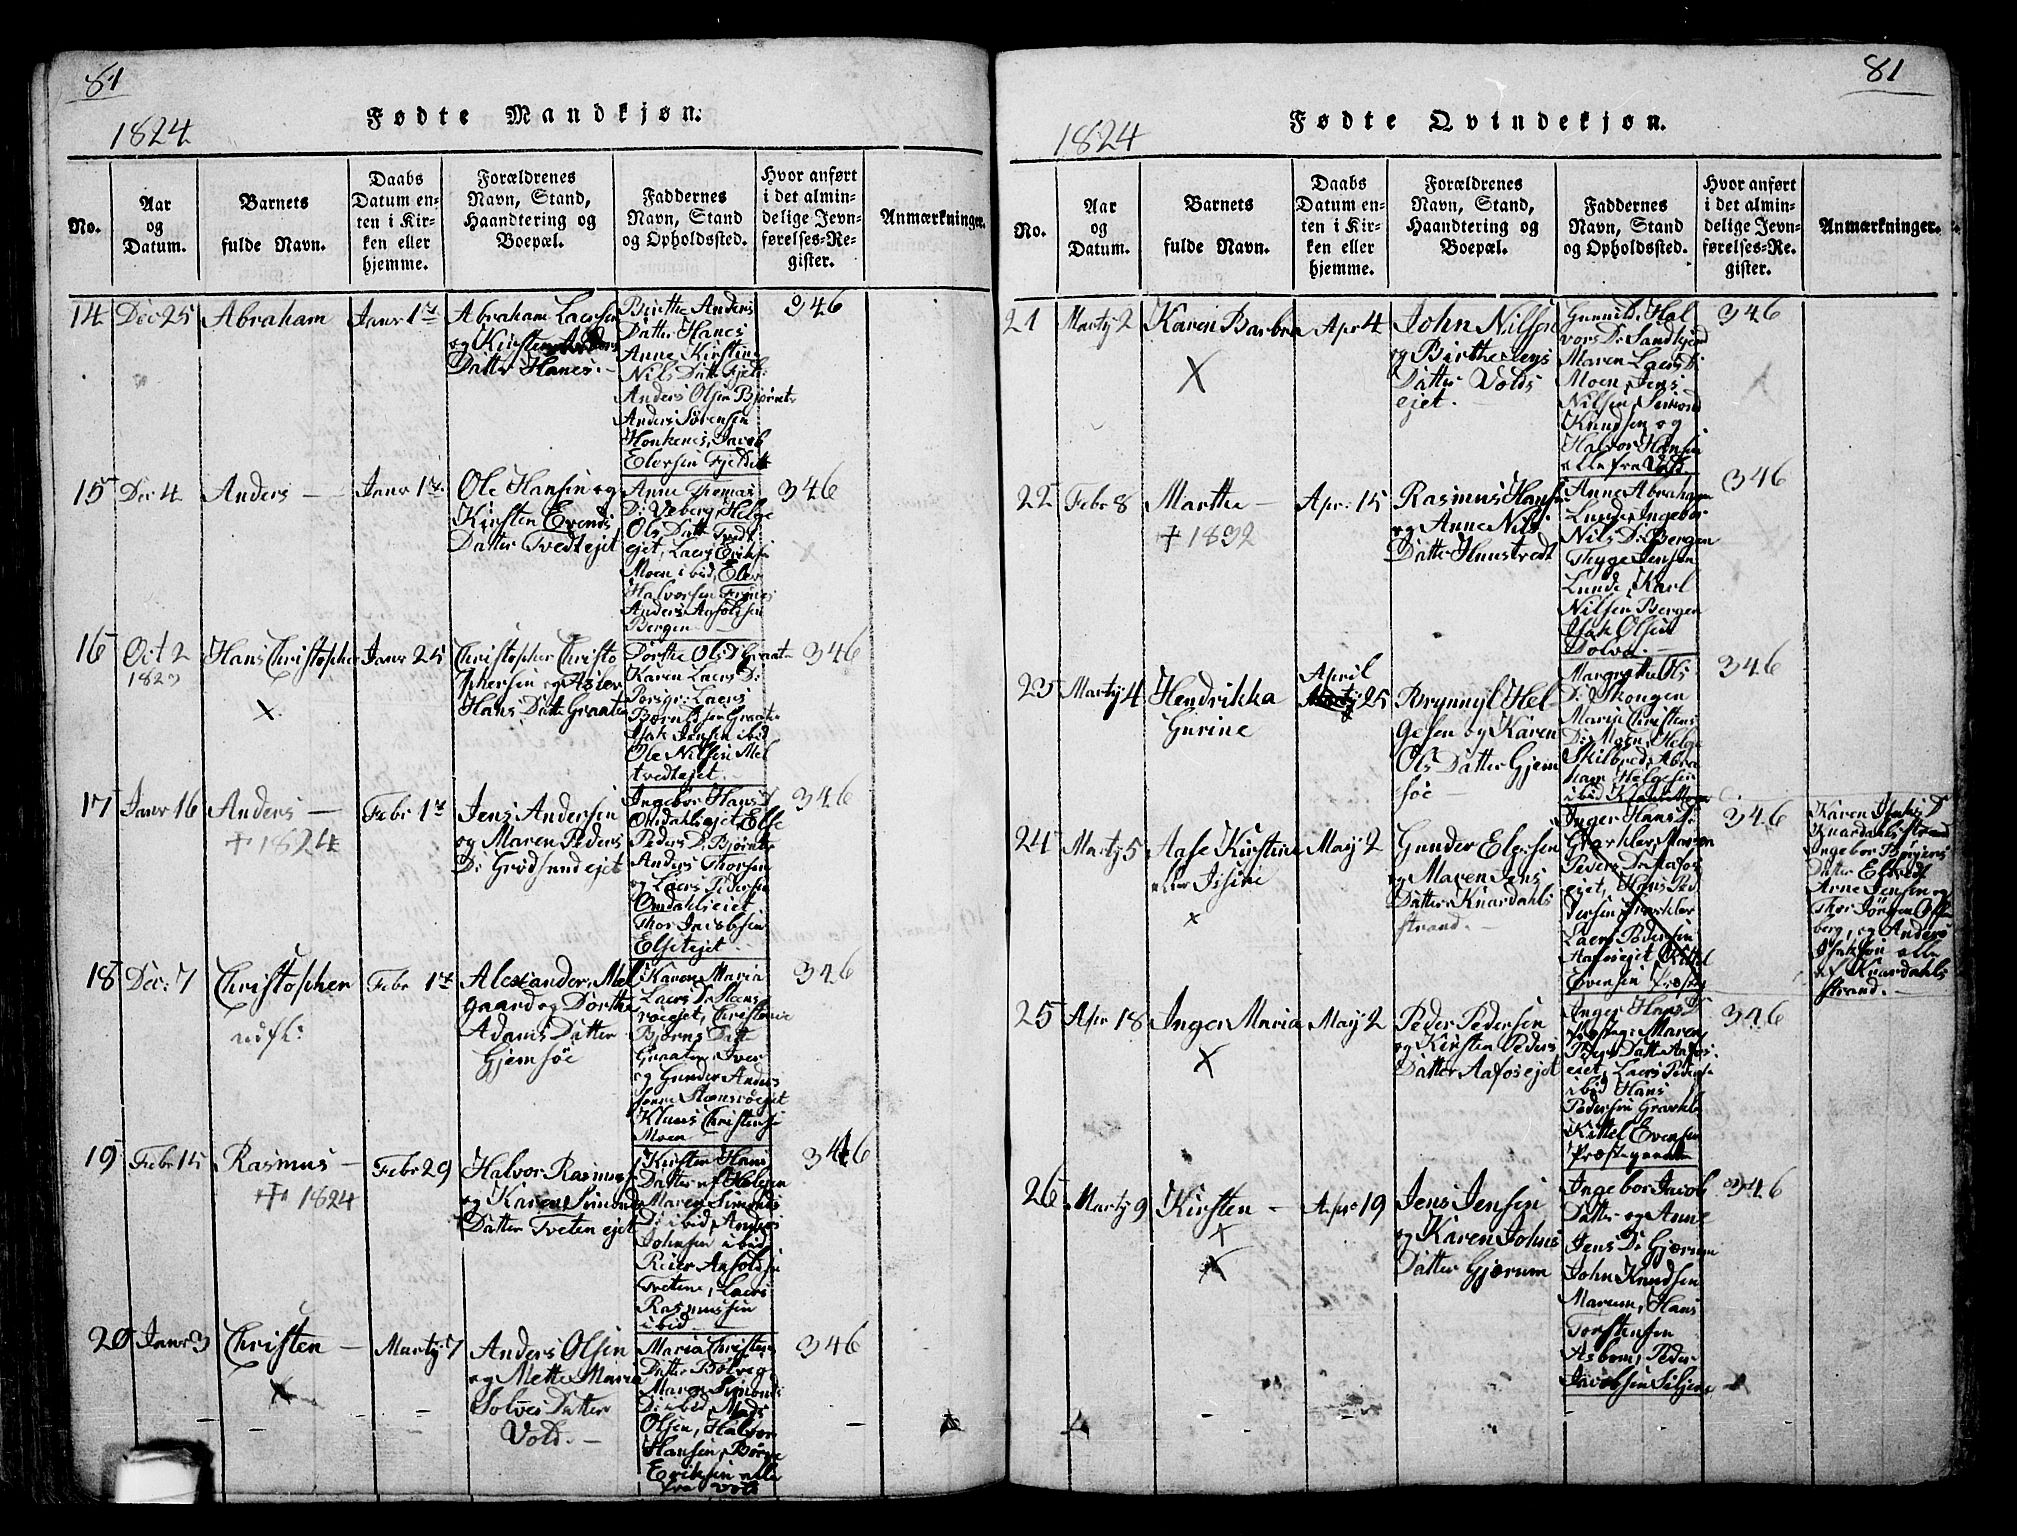 81
1824
Fødte Mandkjøn.
No.
Aar
og
Datum.
Barnets
fulde Navn.
Daabs
Datum en-
ten i Kir-
ken eller
hjemme.
Forældrenes
Navn, Stand,
Haandtering og
Boepæl.
Faddernes
Navn, Stand
og Opholdssted.
Hvor anført
i det almin-
delige Jevn-
førelses-Re-
gister.
Anmærkninger.
14 Dec 25 Abraham Janr 1te
Abraham Laersen
og Kirsten Anders
Datter Hanes.
Birthe Anders
Datter Hanes
Anne Kirstine
Nils Datt Fjeld
Anders Olsen Bjørnt
Anders Sørensen
Honkenes, Jacob
Elersen Fjeld
346
15 Dec 4 Anders Janr 1te
Ole Hansen og
Kirsten Evends
Datter Tvedtejet
Anne Thomas
D: Veberg, Helge
Ols Datt Tvedt
ejet, Laers Eriks
Moen ibid, Eler
Halvorsen
Anders
Bergen
346
16 Oct 2
1823
Hans Christopher
X
Janr 25
Christopher Christo
phersen og Aslev
Hans Datt Graaten
Dorthe Ols D Graat
Karen Laers D:
Borsgr: Laers
Bjørnsen Graate
Isak Jensen ibid
Ole Nilsen Mel
tvedtejet
346
17 Janr 16 Anders
+ 1824
Febr 1te
Jens Andersen
og Maren Peders
D: Grødsundejet
Ingebor Hans D
Omdahlsejet, Else
Peders D: Bjørnt
Anders Thorsen
og Laers Pedersen
Omdahlsejet
Thor Jacobsen
Elsetejet
346
18 Dec: 7 Christopher
Febr 1te
Alexander Mel
gaard og Dorthe
Adams Datter
Gjemsøe
Karen Maria
Laers D: Steens
røeejet, Christense
Bjørns Datt
Graaten, Iver
og Gunder Anders
sønne Steensrøeejet
Klaus Christense
Moen
346
19 Febr 15 Rasmus
+ 1824
Febr 29
Halvor Rasmus
og Karen Simons
Datter Tvetenejet
Kirsten Hans
Datter af Helgen
Maren Simons
D: ibid, Anders
Johnsen ibid
Reier
Tvetene, Laers
Rasmussen
ibid
346
20 Janr 3 Christen
X
Martj 7
Anders Olsen
og Mette Maria
Solves Datter
Vold.
Maria Christens
Datter Bolvig
Maren Simonds
D: ibid, Mads
Olsen, Halvor
Hansen, Børge
Eriksen alle
fra Vold
346
81
1824
Fødte Qvindekjøn.
No.
Aar
og
Datum.
Barnets
fulde Navn.
Daabs
Datum en-
ten i Kir-
ken eller
hjemme.
Forældrenes
Navn, Stand,
Haandtering og
Boepæl.
Faddernes
Navn, Stand
og Opholdssted.
Hvor anført
i det almin-
delige Jevn-
førelses-Re-
gister.
Anmærkninger.
21 Martj 2 Karen Barbra
X
Apr 4
John Nilsen
og Birthe Jens
Datter Volds
ejet.
Gunnild Hal
vors D: Sandkjend
Maren Laers D:
Moen, Jens
Nilsen, Simond
Knudsen og
Halvor Hansen
alle fra Vold
346
22 Febr 8 Marthe
+ 1832
Apr: 15
Rasmus Hansen
og Anne Nils
Datter
Anne Abraham
Lunde, Ingebor
Nils D: Bergen
Thyge Jensen
Lunde, Karl
Nilsen Bergen
Isak Olsen
Dolva.
346
23 Martj 4 Hendrikka
Gurine
April
25
Brynnyl Hel
gesen og Karen
Ols Datter Gjem
søe
Margrethe Ols
D: Skongen
Maria Christens
D: Moen, Helge
Skilbred, Abra
ham Helgesen
ibid
346
24 Martj 5 Aase Kirstine
eller Issine
x
Maj 2
Gunder Elersen
og Maren Jens
Datter Knardahls
strand.
Inger Hans D:
Grarkler, Maren
Peders D: Aafos
ejet, Hans Pe
dersen Grarkler
Laers Pedersen
Aafosejet, Kittel
Evensen Præste
346
Karen Isaks D
Knardahlsstrand
Ingebor Børgers
Datter
Arne Jensen og
Thor Jørgen
berg, og Anders
Isaksøn alle
af Knardahls
strand.
25 Apr 18 Inger Maria
X
Maj 2
Peder Pedersen
og Kirsten Peders
Datter Aafosejet
Inger Hans D
Maren
Peders Datt Aafos
ejet, Laers Peders
ibid Hans
Pedersen Grarkle
Kittel Evensen
Præstegaarden
346
26 Martj 9 Kirsten
x
X
Apr 19
Jens Jensen
og Karen Johns
Datter Gjærum
Ingebor Jacob
Datter og Anne
Jens D: Gjærum
John Knudsen
Marum, Hans
Torstensen
Asbom, Peder
Jacobsen Siljene
346